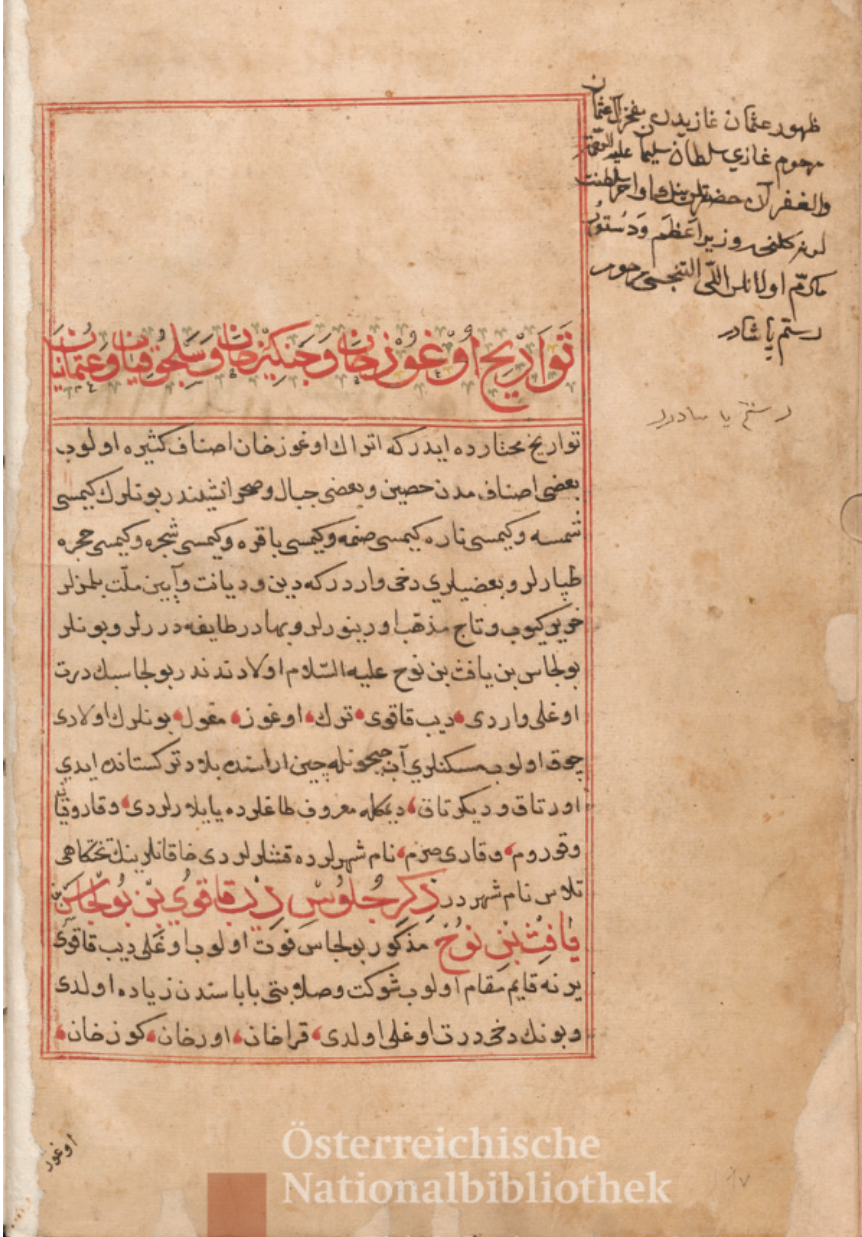 ظهور عثمان غازیدن مفخر آل عثمان
مرحوم غازی سلطان سلیمان علیه الرحمة
والغفران حضرتلرینك اواخر سلطنت
لرینه کلنجه وزیر اعظم ودستور
مکرم اولانلرك التنجسی مرحوم
رستم پاشادر
رستم پاشادر
تَوَاریخ اُوغوُز خان وَجنکیز خان وَسَلجُوقیان وَعثمانیان
تواریخ مختارده ایدرکه اتراك اوغوز خان اصناف کثیره اولوب
بعضی اصناف مدن حصین وبعضی جبال وصحرانشیندر بونلرك کیمسی
شمسه وکیمسی ناره کیمسی صنمه وکیمسی باقره وکیمسی شجره وکیمسی حجره
طپارلر وبعضیلری دخی واردرکه دین ودیانت وآیین ملّت بلمزلر
کیوب وتاج مذهّب اورینورلر وبهادر طایفه در رلر وبونلر
بولجاس بن یافث بن نوح علیه السّلام اولادندندر بولجاسك درت
اوغلی واردی دیب قاقوی ترك اوغوز مغول بونلرك اولادی
چوق اولوب مسکنلری آب جیحونله چین اراسنده بلاد ترکستانده ایدی
اورتاق ودیکرتاق دیمکله معروف طاغلرده یایلارلردی وقاروقیا
وقوروم وقاری صرم نام شهرلرده قشلارلردی خاقانلرینك تختکاهی
تلاس نام شهردر ذِکر جُلوُسْ دیْب قاقوُی بْن بُولجاس بن
یافث بْن نوُح مذکور بولجاس فوت اولوب اوغلی دیب قاقوی
یرنه قایم مقام اولوب شوکت وصلابتی باباسندن زیاده اولدی
وبونك دخی درت اوغلی اولدی قراخان اورخان کوزخان
اوغوز
Österreichische
Nationalbibliothek